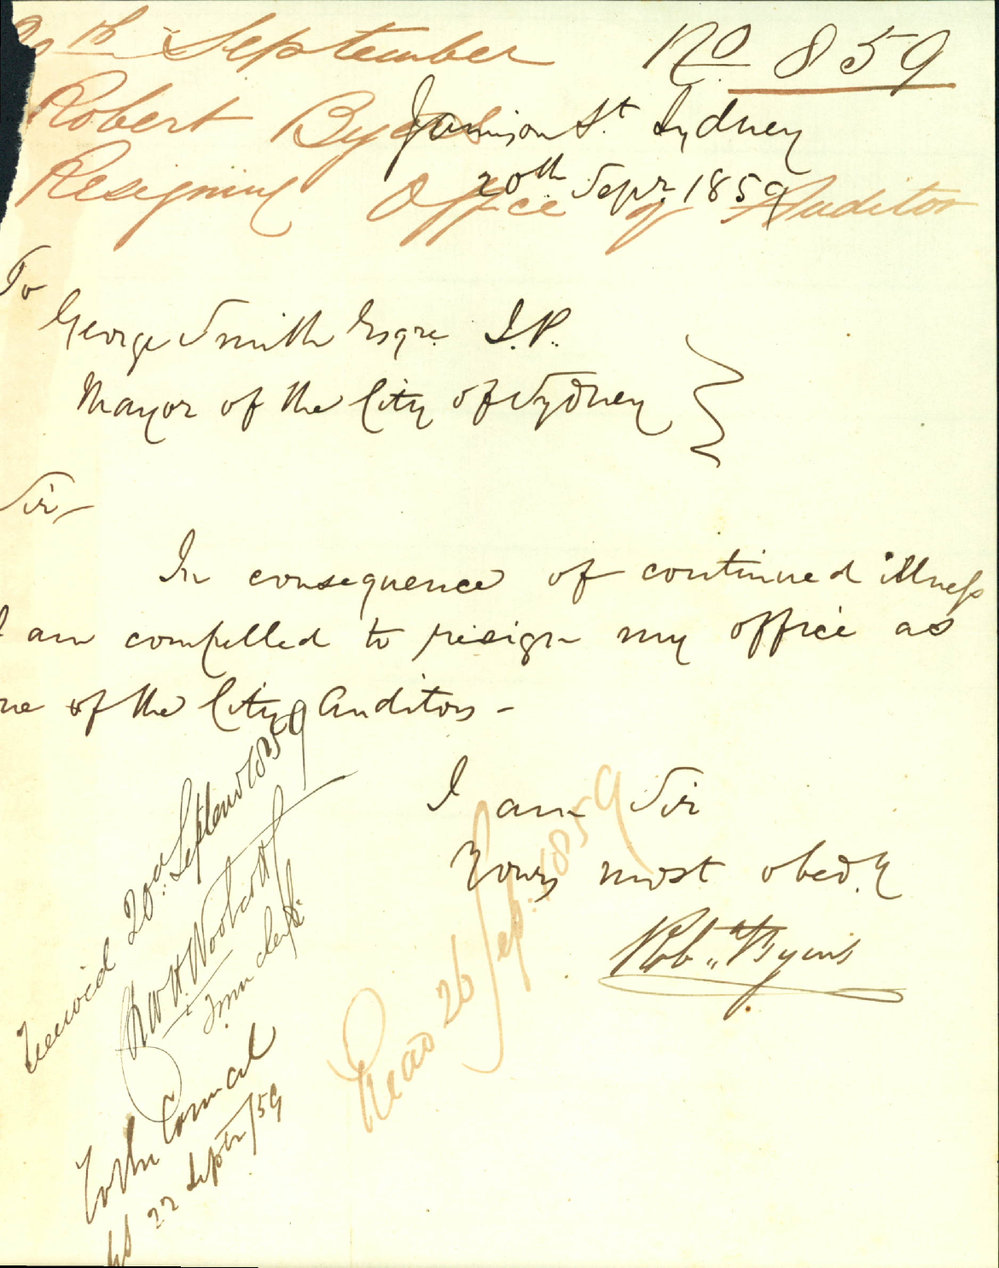 20th September No 859
Robert Byers
Resigning Office of Auditor
Jamison St. Sydney
20th Septr. 1859
To
George Smith Esqre. J.P.
Mayor of the City of Sydney
Sir,
In consequence of continued illness
I am compelled to resign my office as
one of the City Auditors -
I am Sir
Yours most obedt.
Robt. Byers
Received 20th Septemr 1859
R W H Woolcott
Town Clerk
To the Council
22 Septr/59
Read 26 Sep. 1859